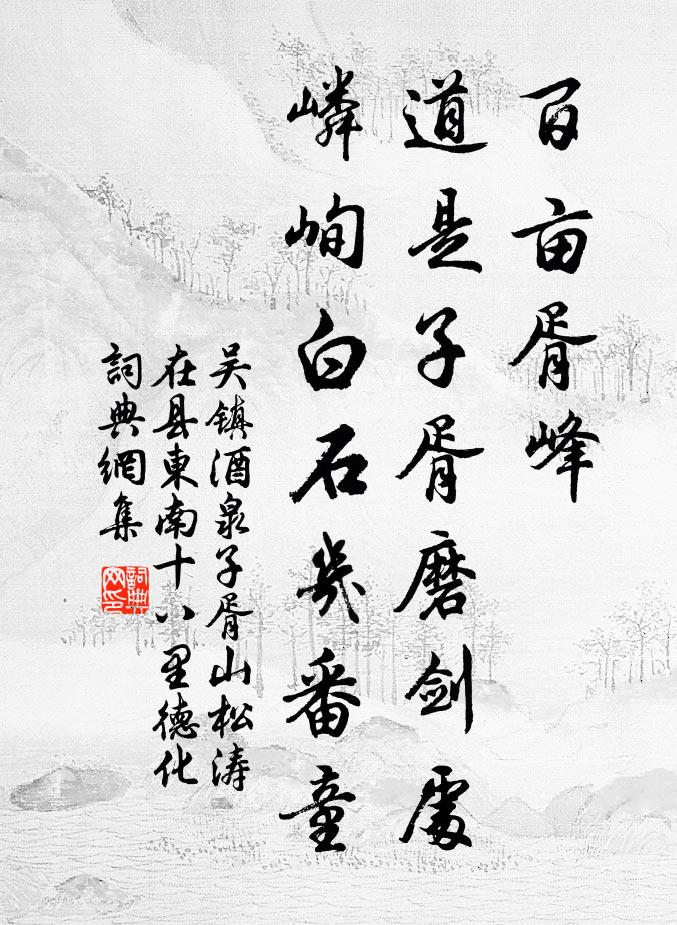 百亩胥峰
道是子胥磨剑處
嶙峋白石幾番童
吴镇酒泉子胥山松涛
在县東南十八里德化
詞典網集
詞典網印